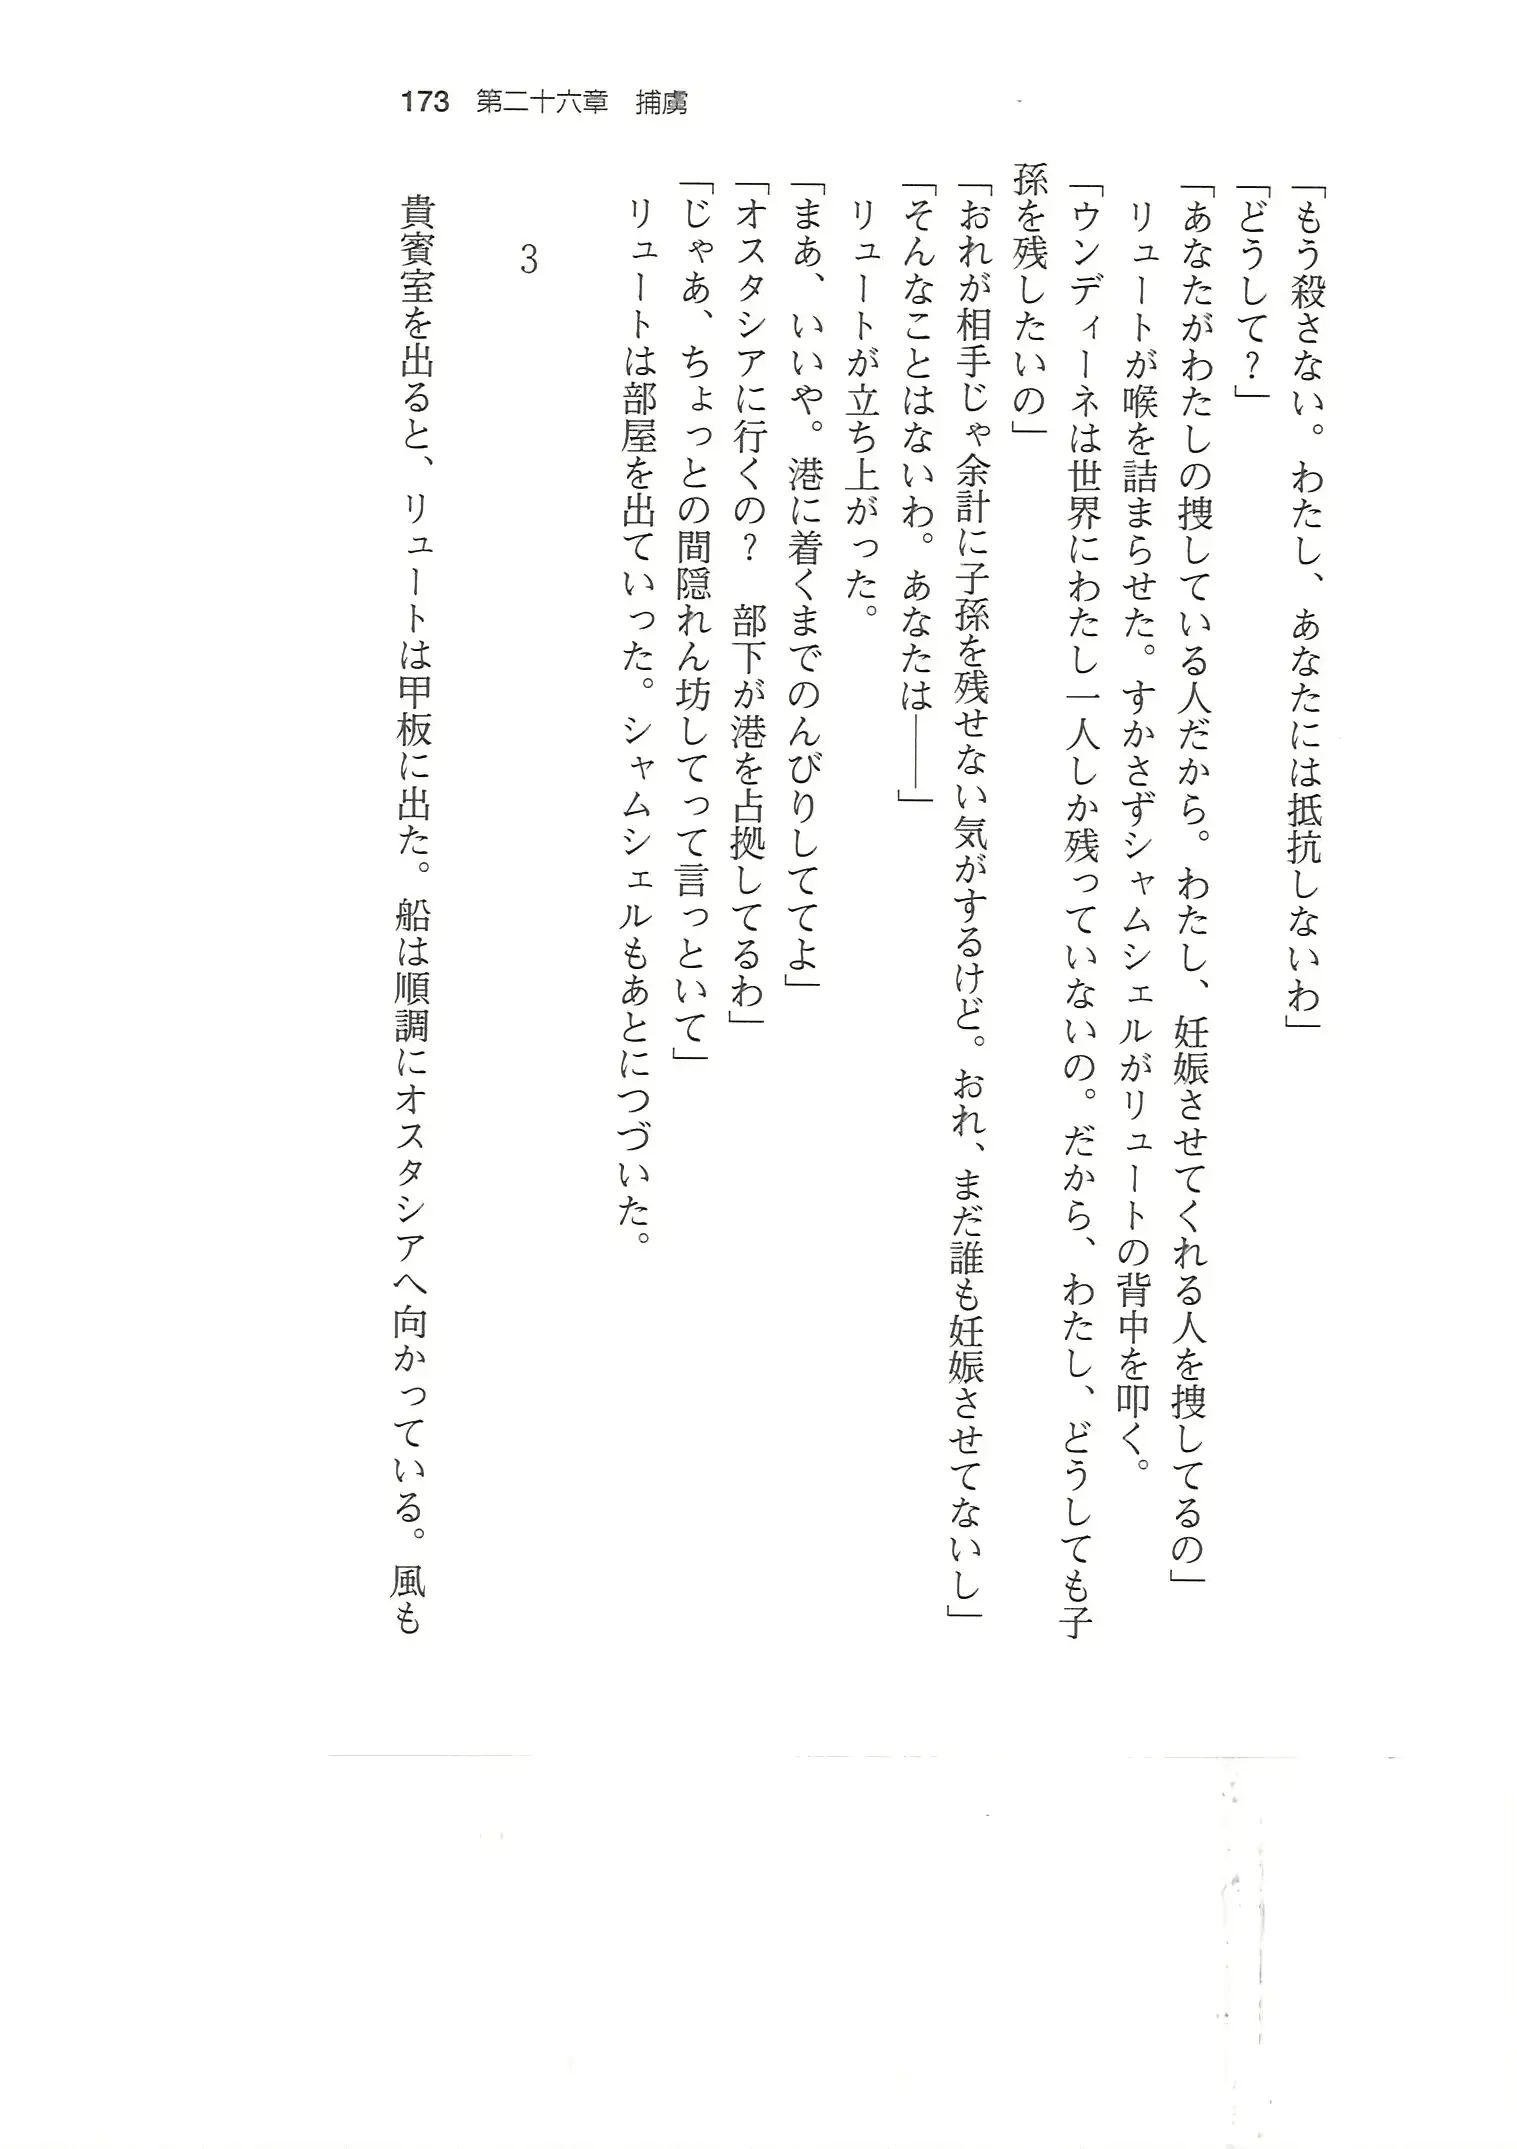 173 第二十六章 捕虜
「もう殺さない。わたし、あなたには抵抗しないわ」
「どうして？」
「あなたがわたしの捜している人だから。わたし、妊娠させてくれる人を捜してるの」
リュートが喉を詰まらせた。すかさずシャムシェルがリュートの背中を叩く。
「ウンディーネは世界にわたし一人しか残っていないの。だから、わたし、どうしても子
孫を残したいの」
「おれが相手じゃ余計に子孫を残せない気がするけど。おれ、まだ誰も妊娠させてないし」
「そんなことはないわ。あなたは――」
リュートが立ち上がった。
「まあ、いいや。港に着くまでのんびりしててよ」
「オスタシアに行くの？　部下が港を占拠してるわ」
「じゃあ、ちょっとの間隠れん坊してって言っといて」
リュートは部屋を出ていった。シャムシェルもあとにつづいた。
3
貴賓室を出ると、リュートは甲板に出た。船は順調にオスタシアへ向かっている。風も